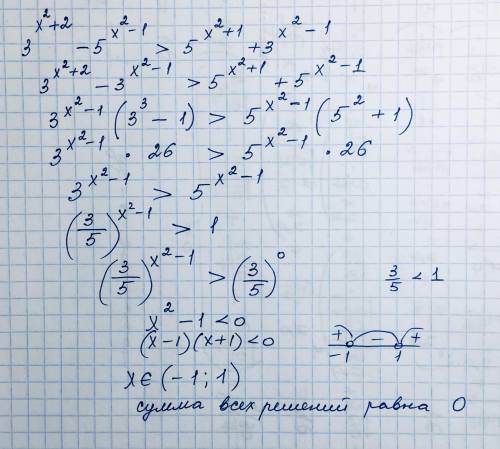 3^(x²+2) − 5^(x²−1) > 5^(x²+1) + 3^(x²−1)
3^(x²+2) − 3^(x²−1) > 5^(x²+1) + 5^(x²−1)
3^(x²−1) (3³ − 1) > 5^(x²−1) (5² + 1)
3^(x²−1) · 26 > 5^(x²−1) · 26
3^(x²−1) > 5^(x²−1)
(3/5)^(x²−1) > 1
(3/5)^(x²−1) > (3/5)^0 3/5 < 1
x² − 1 < 0
(x−1)(x+1) < 0 + − +
−1 1
x ∈ (−1; 1)
сумма всех решений равна 0